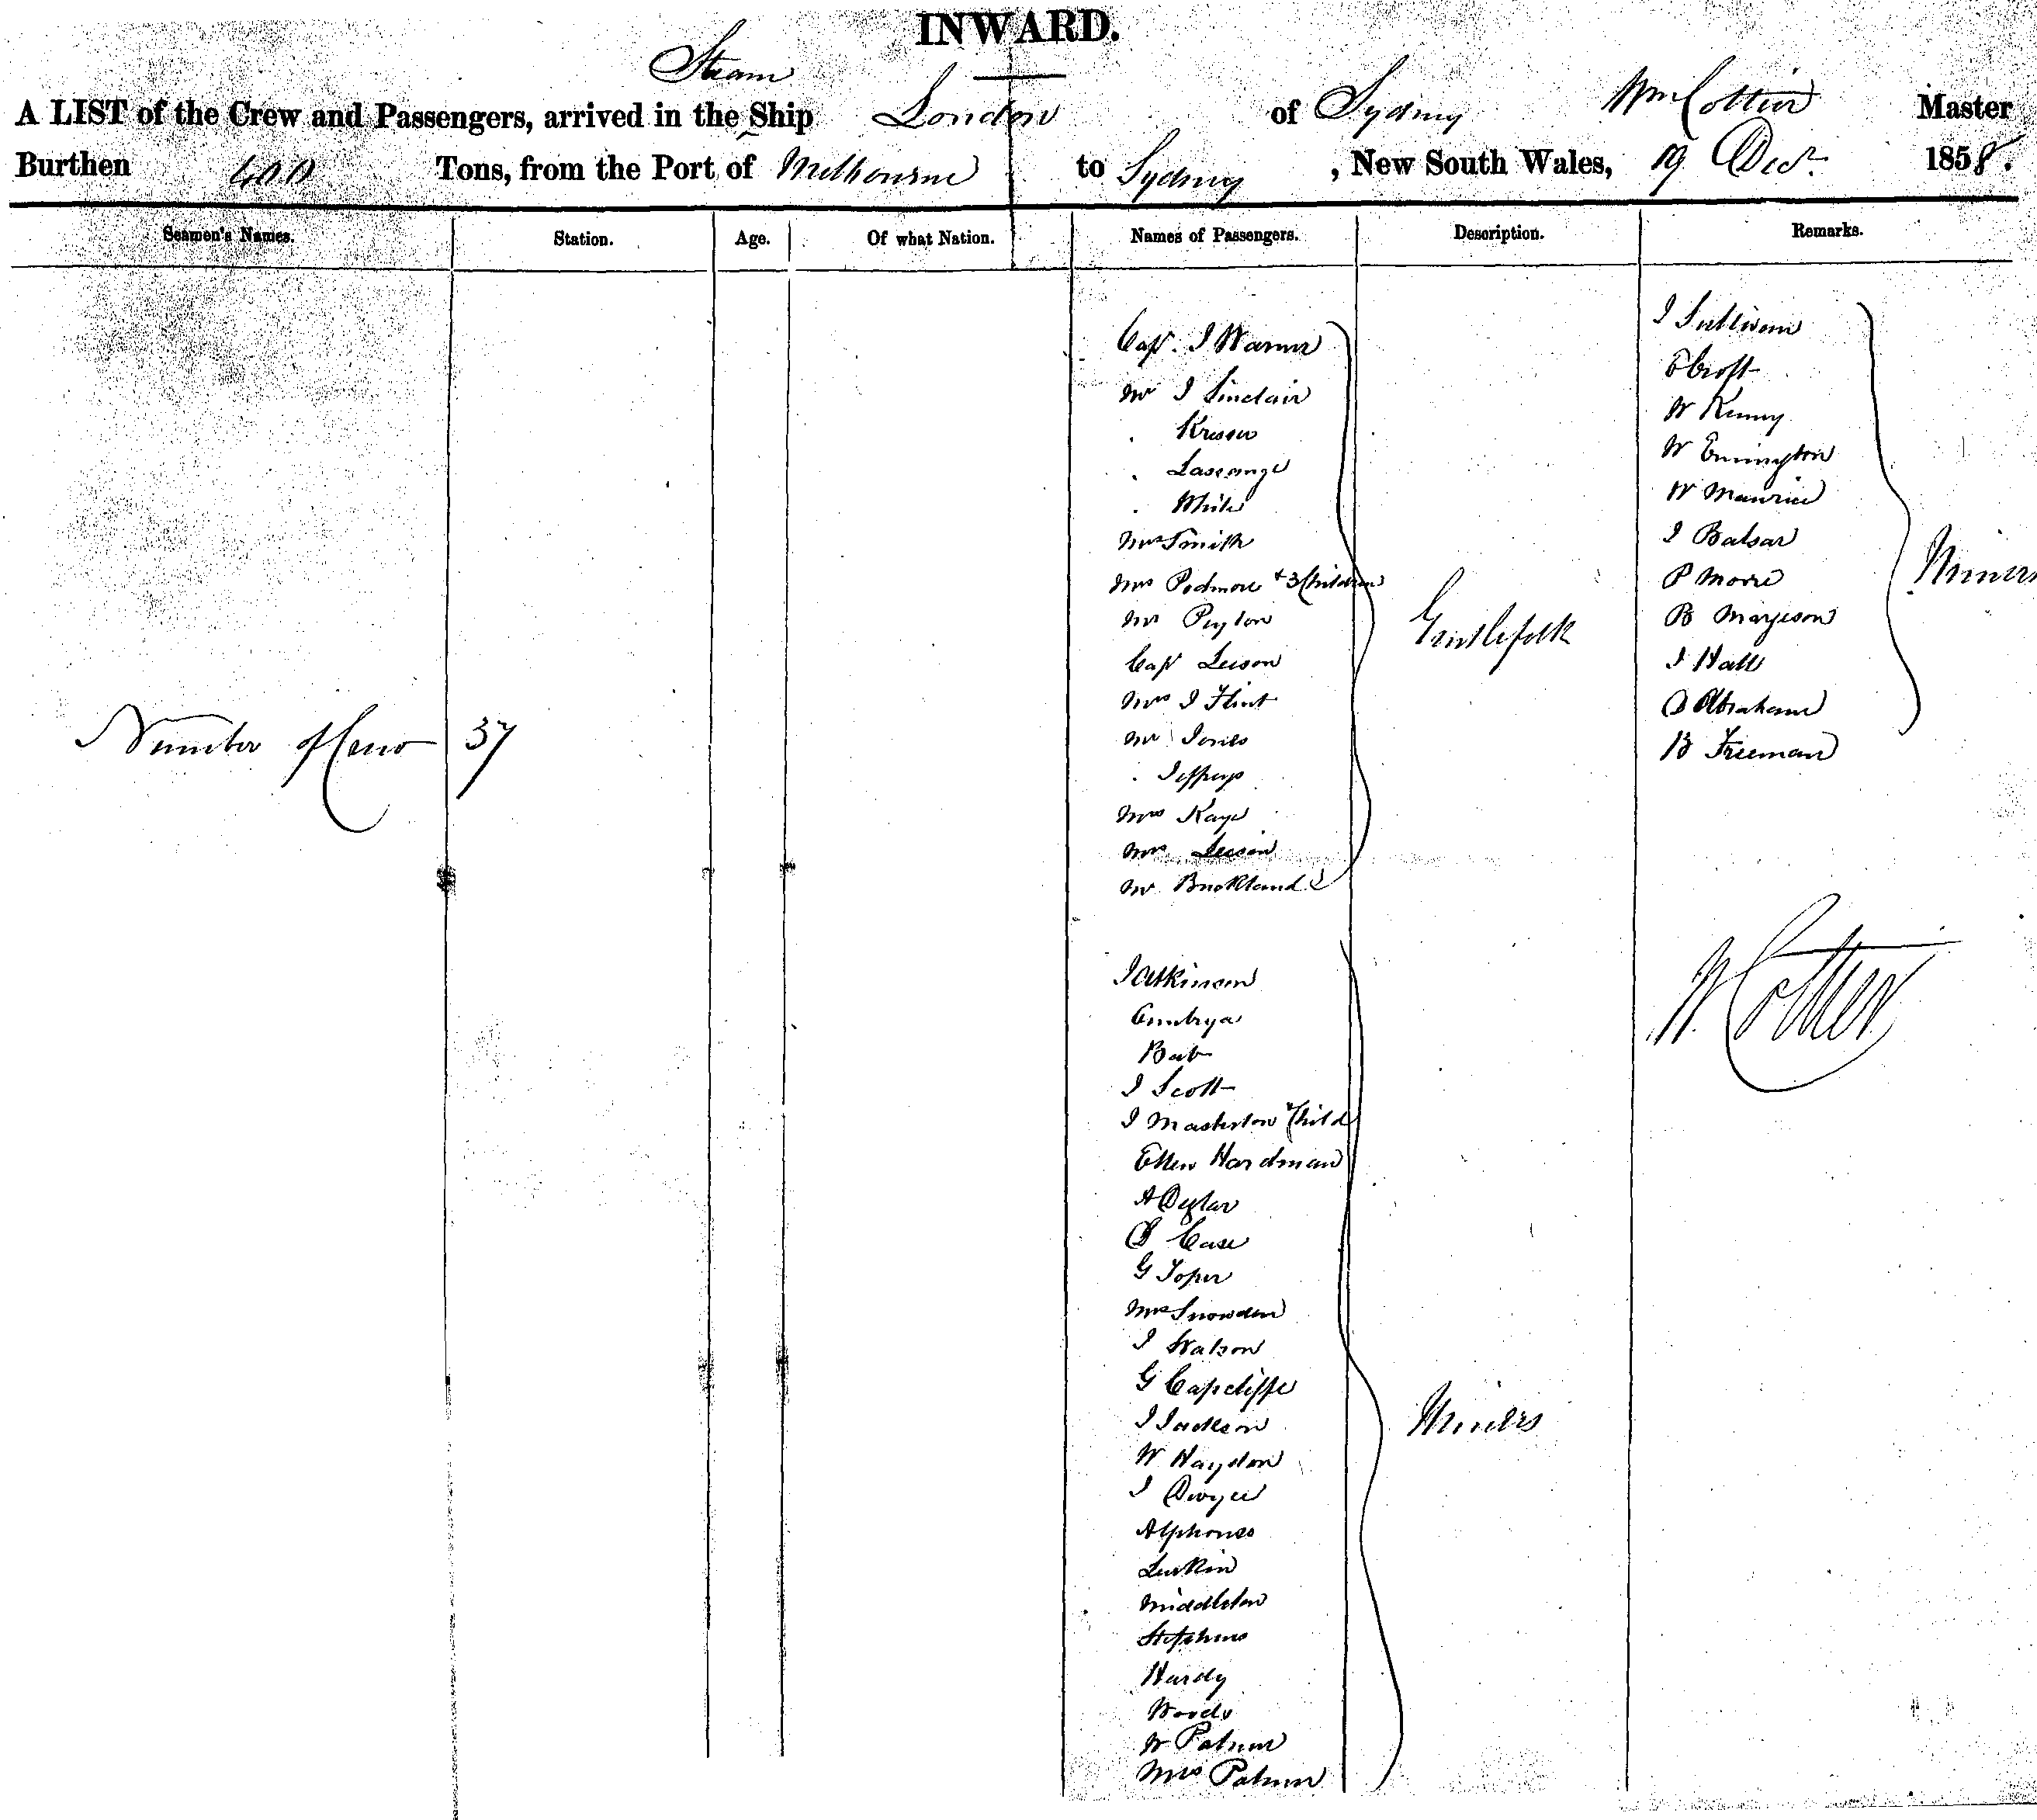 INWARD.
Steam
A LIST of the Crew and Passengers, arrived in the Ship London of Sydney Wm Cottier Master
Burthen 400 Tons, from the Port of Melbourne to Sydney, New South Wales, 19 Decr. 1858.
Seamen's Names. Station. Age. Of what Nation. Names of Passengers. Description. Remarks.
Number of Crew 37
Capt. J Warner
Mr J Sinclair
" 
" 
" White
Mrs Smith
Mrs Podmore + 3 Children
Mr Peyton
Capt Leeson
Mrs J Flint
Mr Jones
" Jefferys
Mrs Kaye
Mrs Leeson
Mr Buckland
Gentlefolk
J Atkinson
J Scott
J Masterton & Child
Ellen Hardman
Case
G Toper
Mrs Snowden
J Watson
G Capcliffe
J Jackson
W Haydon
J Dwyer
Alphonso
Larkin
Middleton
Stephens
Hardy
Woods
W Palmer
Mrs Palmer
Miners
J Sullivan
E Croft
W Kenny
W Ennington
W Maurice
J Balsar
P Moore
B Marjeson
J Hall
D Abraham
B Freeman
Miners
W. Cottier